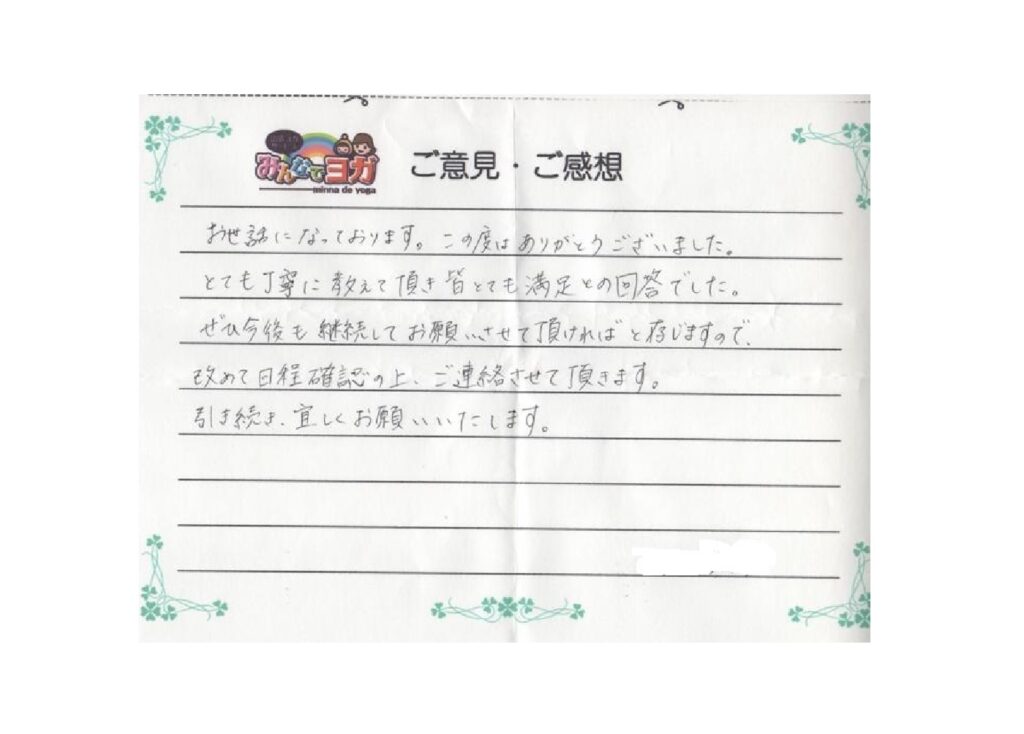 みんなでヨガ
minna de yoga
ご意見・ご感想
お世話になっております。この度はありがとうございました。
とても丁寧に教えて頂き皆とても満足との回答でした。
ぜひ今後も継続してお願いさせて頂ければと存じますので、
改めて日程確認の上、ご連絡させて頂きます。
引き続き、宜しくお願いいたします。